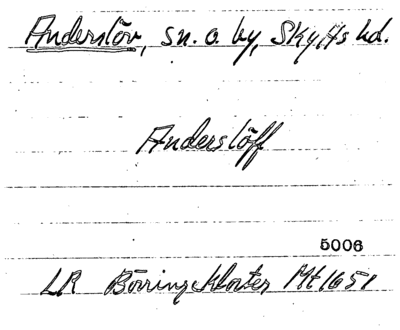 Anderslöv, sn. o. by, Skytts hd.
Anderslöff
5006
LR Börringekloster Mt 1651